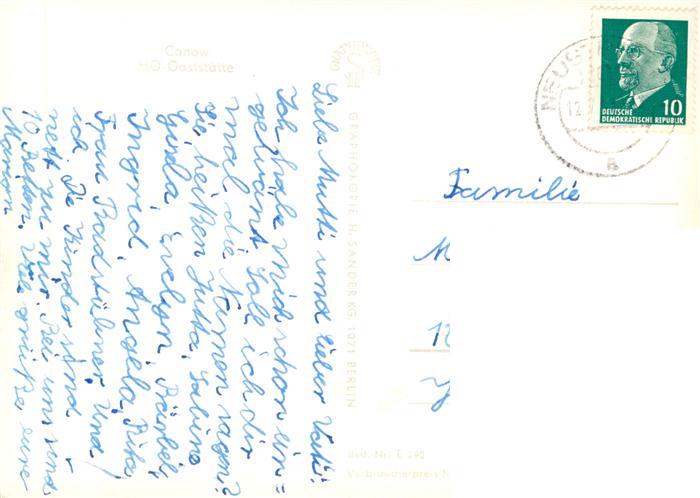 Canow
HO-Gaststätte
GRAPHOKOPIE H. SANDER KG 1071 BERLIN
Best. Nr. E 190
Verbraucherpreis M
NEUST
12
a
10
DEUTSCHE
DEMOKRATISCHE REPUBLIK
Familie
M
12
Liebe Mutti und lieber Vati!
Ich habe mich schon ein=
gelebt. Soll ich dir
mal die Namen sagen?
Sie heißen Jutta, Sabine
Gerda, Evelyn, Bärbel,
Ingrid, Angela, Rita,
Frau Radtübner und
ich. Die Kinder sind
nett zu mir. Bei uns sind
10 Betten. Viele Grüße eure
Marion